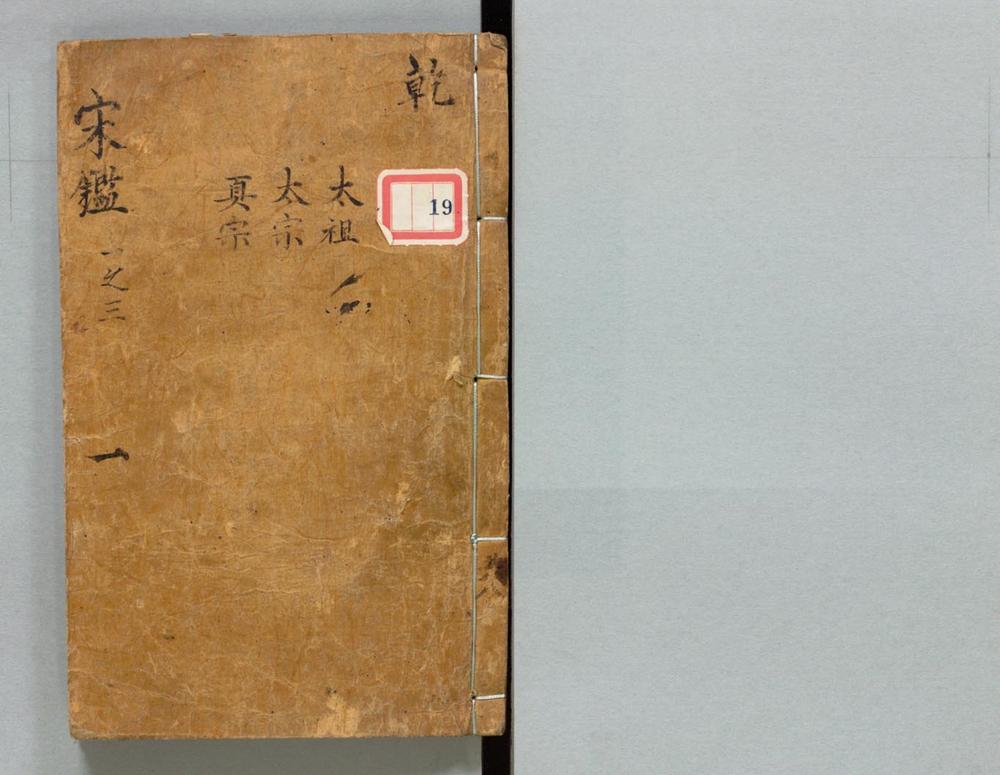 乾
19
太祖
太宗
真宗
宋鑑 一之三
一